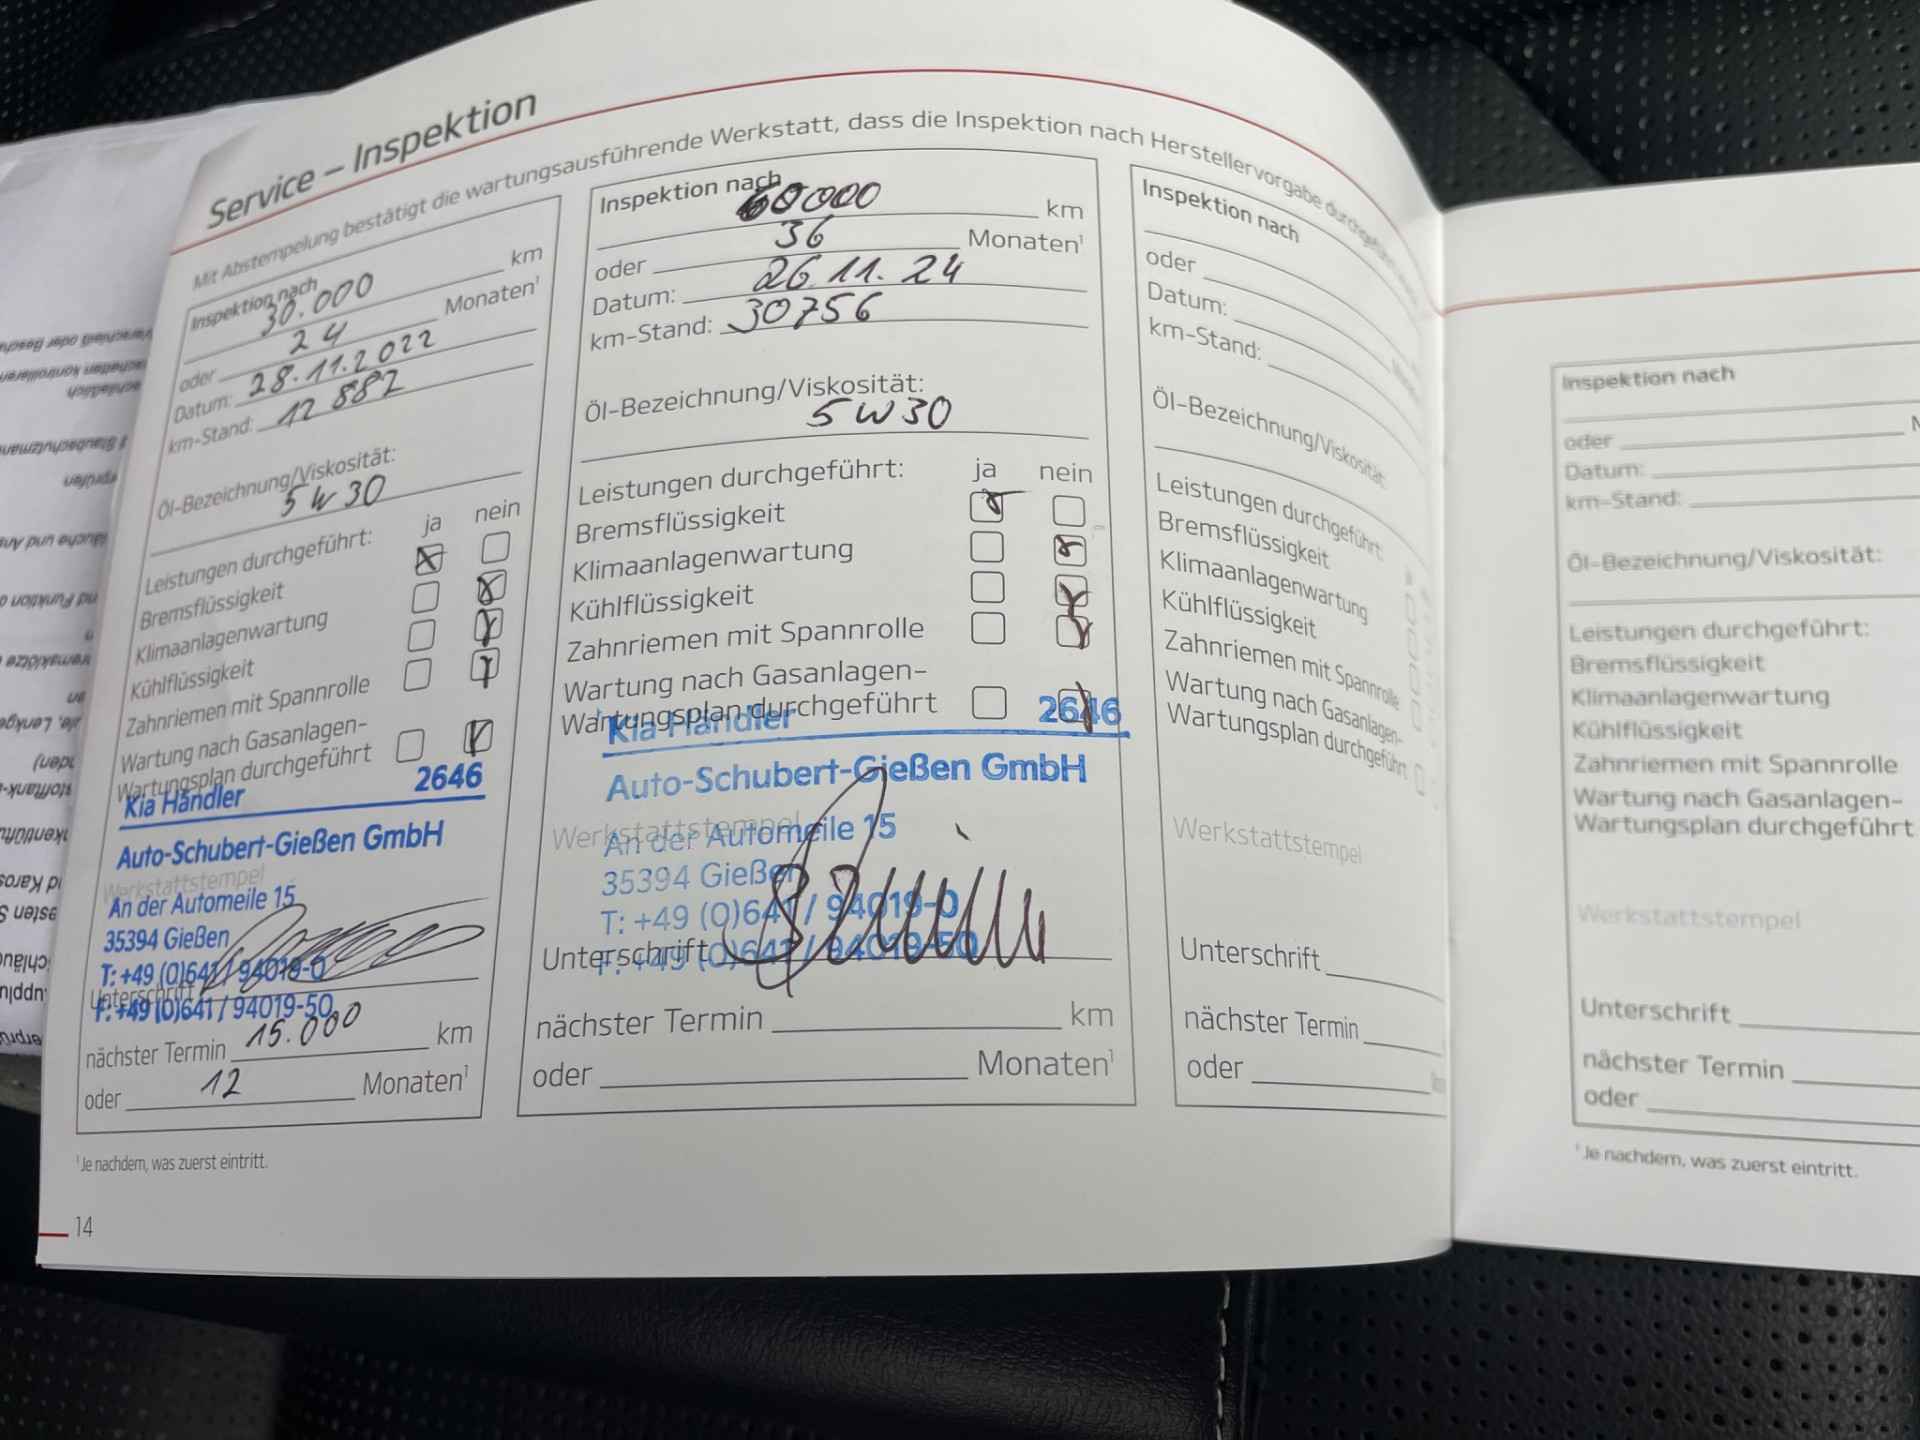 Service – Inspektion
Mit Abstempelung bestätigt die wartungsausführende Werkstatt, dass die Inspektion nach Herstellervorgabe durchgeführt
Inspektion nach
30.000 km
oder 24 Monaten¹
Datum: 28.11.2022
km-Stand: 12 882
Öl-Bezeichnung/Viskosität:
5W30
Leistungen durchgeführt: ja nein
Bremsflüssigkeit
Klimaanlagenwartung
Kühlflüssigkeit
Zahnriemen mit Spannrolle
Wartung nach Gasanlagen-
Wartungsplan durchgeführt
Kia Händler 2646
Auto-Schubert-Gießen GmbH
Werkstattstempel
An der Automeile 15
35394 Gießen
T: +49 (0)641 / 94019-0
Unterschrift
F: +49 (0)641 / 94019-50
nächster Termin 15.000 km
oder 12 Monaten¹
¹ Je nachdem, was zuerst eintritt.
14
Inspektion nach
60000 km
oder 36 Monaten¹
Datum: 26.11.24
km-Stand: 30756
Öl-Bezeichnung/Viskosität:
5W30
Leistungen durchgeführt: ja nein
Bremsflüssigkeit
Klimaanlagenwartung
Kühlflüssigkeit
Zahnriemen mit Spannrolle
Wartung nach Gasanlagen-
Wartungsplan durchgeführt
Kia Händler 2646
Auto-Schubert-Gießen GmbH
Werkstattstempel
An der Automeile 15
35394 Gießen
T: +49 (0)641 / 94019-0
Unterschrift
F: +49 (0)641 / 94019-50
nächster Termin km
oder Monaten¹
Inspektion nach
oder
Datum:
km-Stand:
Öl-Bezeichnung/Viskosität:
Leistungen durchgeführt:
Bremsflüssigkeit
Klimaanlagenwartung
Kühlflüssigkeit
Zahnriemen mit Spannrolle
Wartung nach Gasanlagen-
Wartungsplan durchgeführt
Werkstattstempel
Unterschrift
nächster Termin
oder
Inspektion nach
oder
Datum:
km-Stand:
Öl-Bezeichnung/Viskosität:
Leistungen durchgeführt:
Bremsflüssigkeit
Klimaanlagenwartung
Kühlflüssigkeit
Zahnriemen mit Spannrolle
Wartung nach Gasanlagen-
Wartungsplan durchgeführt
Werkstattstempel
Unterschrift
nächster Termin
oder
¹ Je nachdem, was zuerst eintritt.